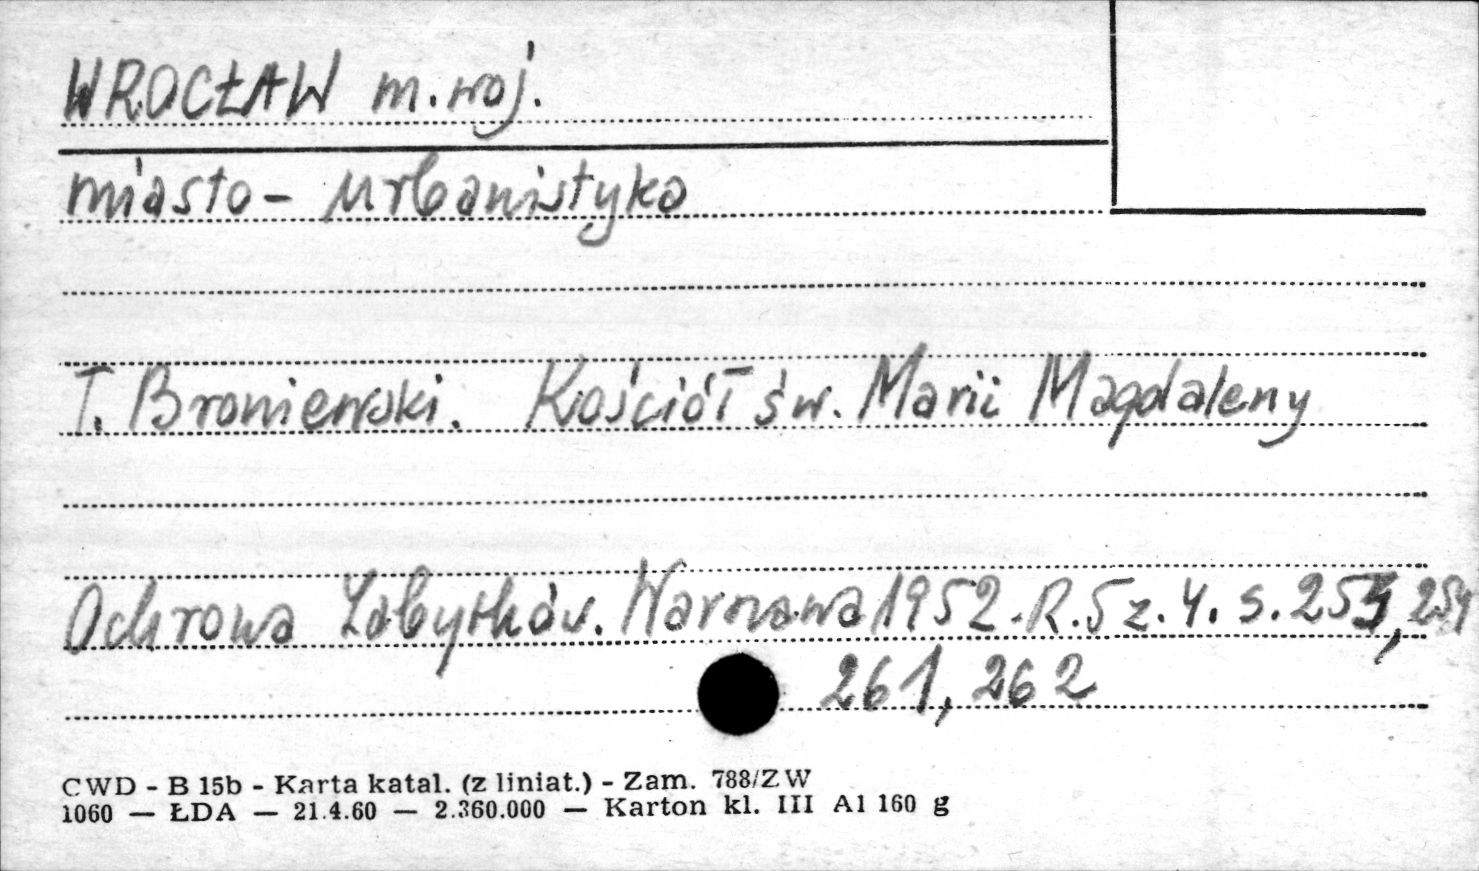 WROCŁAW m.woj.
miasto - urbanistyka
T. Broniewski. Kościół św. Marii Magdaleny
Ochrona Zabytków. Warszawa 1952. R.5 z. 4. s. 253, 259
261, 262
CWD - B 15b - Karta katal. (z liniat.) - Zam. 788/ZW
1060 — ŁDA — 21.4.60 — 2.360.000 — Karton kl. III A1 160 g